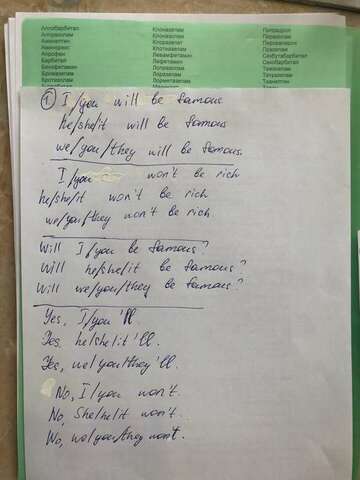 Аллобарбитал Клоназепам Пипрадрол
Алпразолам Клоразепат Празепам
Аминептин Пировалерон
Аминорекс Клотиазепам Празепам
Апрофен Левамфетамин Секбутабарбитал
Барбитал Лефетамин Секобарбитал
Бензфетамин Лопразолам Темазепам
Бромазепам Лоразепам Тетразепам
Бротизолам Лорметазепам Тианептин
① I/you will be famous
he/she/it will be famous
we/you/they will be famous.
I/you won't be rich
he/she/it won't be rich
we/you/they won't be rich
Will I/you be famous?
Will he/she/it be famous?
Will we/you/they be famous?
Yes, I/you'll.
Yes, he/she/it'll.
Yes, we/you/they'll.
No, I/you won't.
No, She/he/it won't.
No, we/you/they won't.